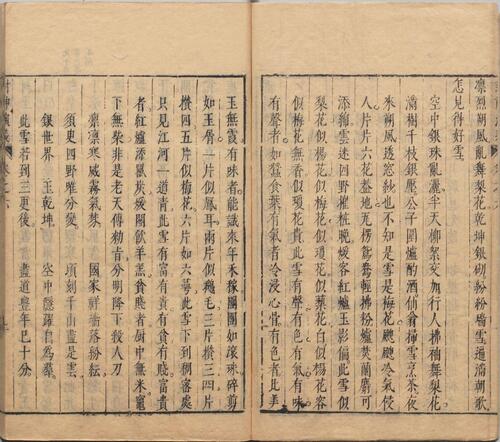 凛烈朔風亂舞梨花乾坤銀砌粉牆雪遍滿朝歌
怎見得好雪。
空中銀珠亂灑半天柳絮交加行人拂袖舞梨花
滿樹千枝銀壓公子圍爐酌酒仙翁掃雪烹茶夜
來朔風透窓紗也不知是雪是梅花颼颼冷氣侵
人片片六花蓋地瓦楞鴛鴦輕拂粉爐焚蘭麝可
添綿雲迷四野摧粧晚煖客紅爐玉影偏此雪似
梨花似楊花似梅花似瓊花似梨花白似楊花容
似梅花無香似瓊花貴此雪有聲有色有氣有味
有聲者如蠶食葉有氣者冷浸心骨有色者比美
玉無霞有味者能識來年禾稼團團如滚珠碎剪
如玉屑一片似鳳耳兩片似鵝毛三片攢三四片
攢四五片似梅花六片如六萼此雪下到稠密處
只見江河一道青此雪有富有貴有貧有賤富貴
者紅爐添獸炭煖閣飲羊羔貧賤者厨中無米竈
下無柴非是老天傳勑旨分明降下殺人刀
凛凛寒威霧氣棼 國家祥瑞落紛紜
須臾四野難分變 頃刻千山盡是雲
銀世界 玉乾坤 空中隱躍自爲羣
此雪若到三更後 盡道豐年已十分
封神演義 卷之六